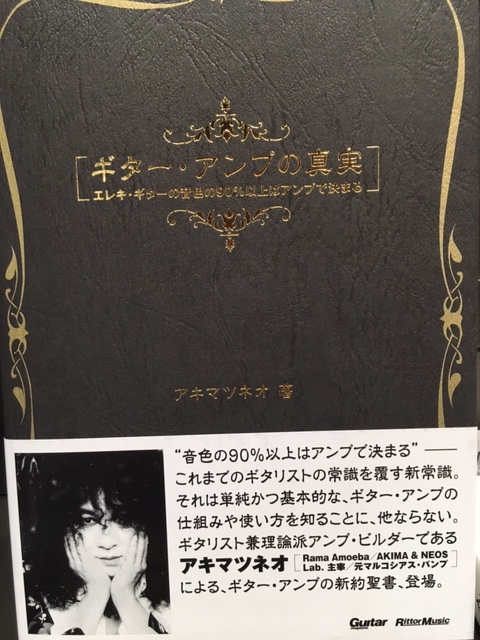 ギター・アンプの真実
エレキ・ギターの音色の90%以上はアンプで決まる
アキマツネオ 著
“音色の90%以上はアンプで決まる”――
これまでのギタリストの常識を覆す新常識。
それは単純かつ基本的な、ギター・アンプの
仕組みや使い方を知ることに、他ならない。
ギタリスト兼理論派アンプ・ビルダーである
アキマツネオ [Rama Amoeba/AKIMA & NEOS
Lab. 主宰/元マルコシアス・バンプ]
による、ギター・アンプの新約聖書、登場。
Guitar magazine RittorMusic